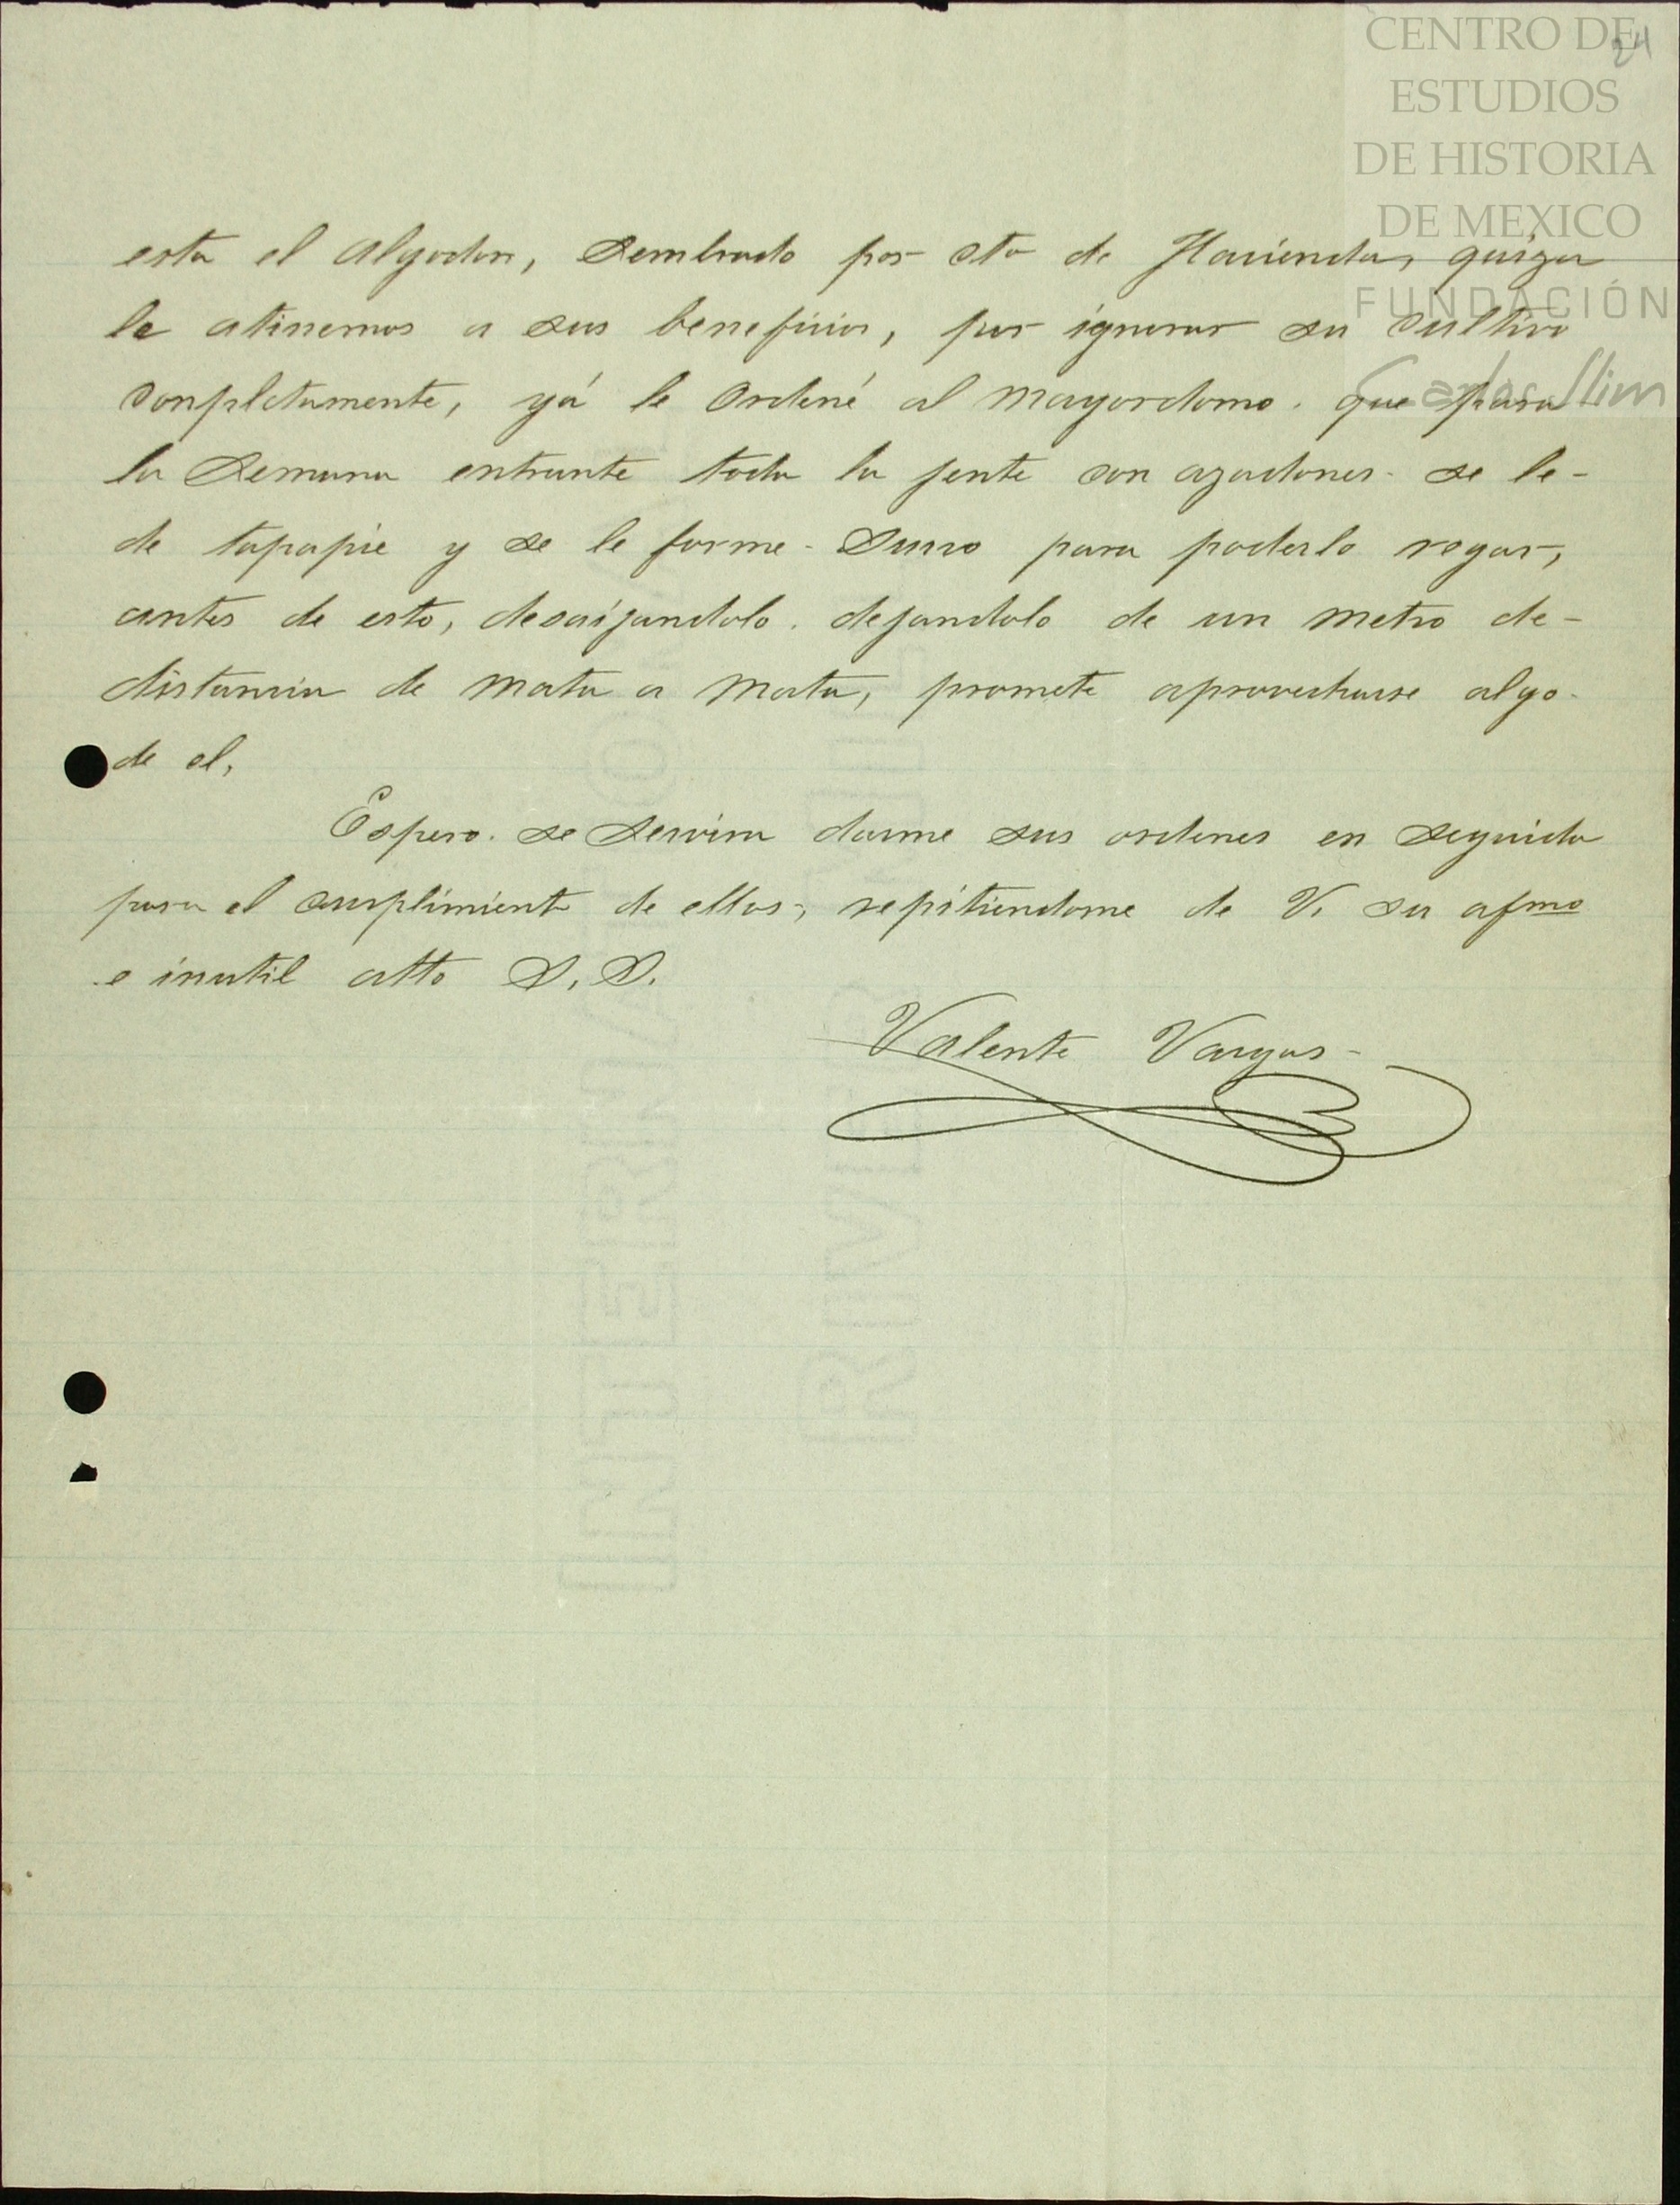 24
CENTRO DE
ESTUDIOS
DE HISTORIA
DE MEXICO
FUNDACIÓN
Carlos Slim
esta el Algodon, Sembrado por cta de Hacienda, quiza
le atinemos a sus beneficios, por ignorar su cultivo
conpletamente, yá le Ordené al Mayordomo. que para
la Semana entrante toda la jente con azadones se le-
de tapapie y se le forme - Surco para poderlo regar,
antes de esto, desaijandolo. dejandolo de un metro de-
distancia de mata a mata, promete aprovecharse algo-
de el,
Espero. se Servira darme sus ordenes en Seguida
para el cumplimiento de ellas, repitiendome de V. su afmo
e inutil atto S. S.
Valente Vargas-